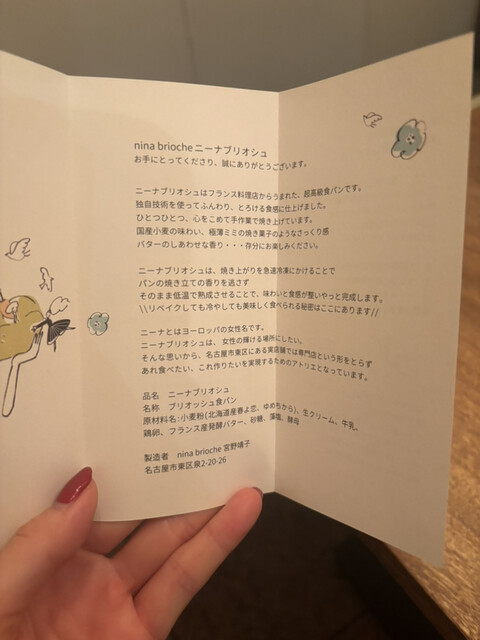 nina brioche ニーナブリオシュ
お手にとってくださり、誠にありがとうございます。
ニーナブリオシュはフランス料理店からうまれた、超高級食パンです。
独自技術を使ってふんわり、とろける食感に仕上げました。
ひとつひとつ、心をこめて手作業で焼き上げています。
国産小麦の味わい、極薄ミミの焼き菓子のようなさっくり感
バターのしあわせな香り・・・存分にお楽しみください。
ニーナブリオシュは、焼き上がりを急速冷凍にかけることで
パンの焼き立ての香りを逃さず
そのまま低温で熟成させることで、味わいと食感が整いやっと完成します。
\\リベイクしても冷やしても美味しく食べられる秘密はここにあります//
ニーナとはヨーロッパの女性名です。
ニーナブリオシュは、女性の輝ける場所にしたい。
そんな思いから、名古屋市東区にある実店舗では専門店という形をとらず
あれ食べたい、これ作りたいを実現するためのアトリエとなっています。
品名 ニーナブリオシュ
名称 ブリオッシュ食パン
原材料名:小麦粉(北海道産春よ恋、ゆめちから)、生クリーム、牛乳、
鶏卵、フランス産発酵バター、砂糖、藻塩、酵母
製造者 nina brioche 宮野靖子
名古屋市東区泉2-20-26